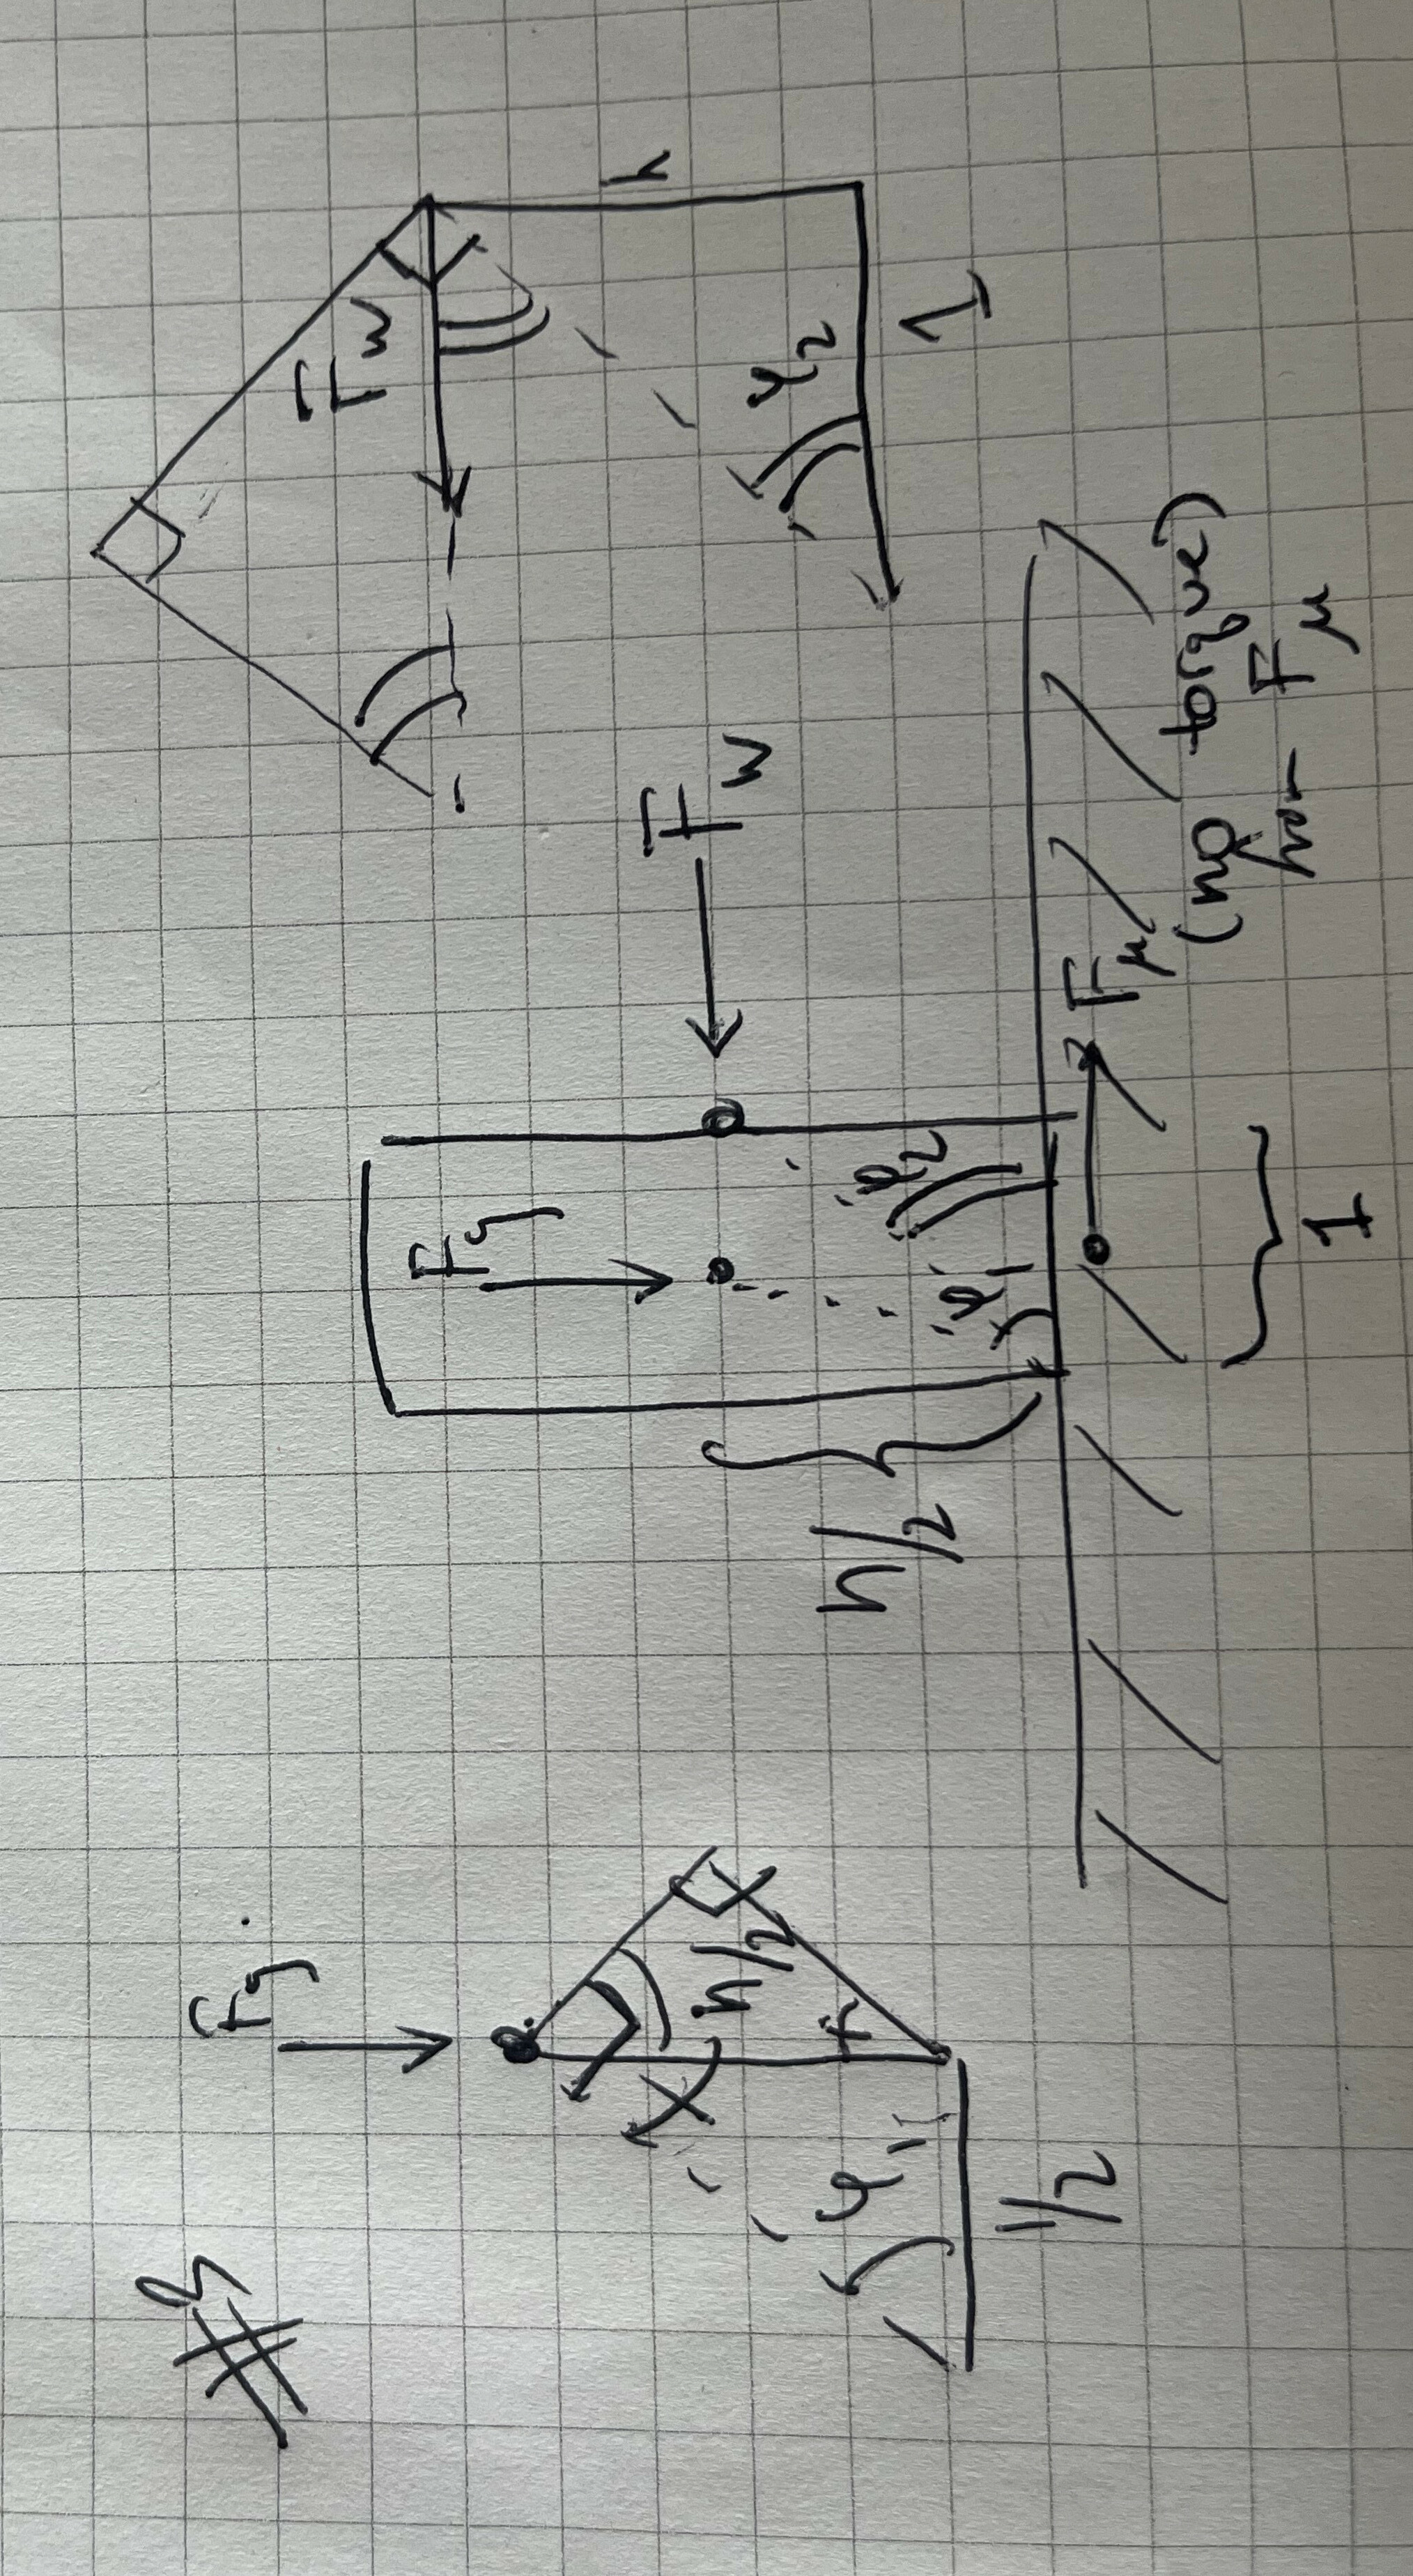 #3
Fg.
h/2
φ1
1/2
Fg
h/2
φ1
φ2
Fw
Fμ
(no torque)
from Fμ
1
Fw
h
φ2
1